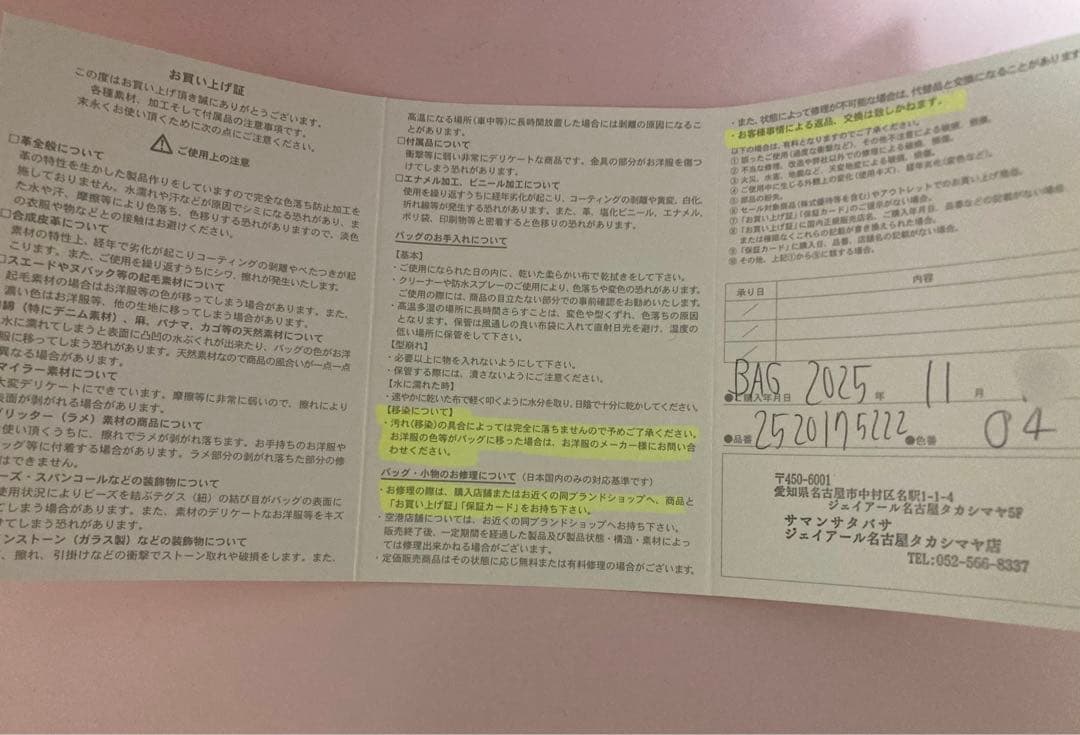 お買い上げ証
この度はお買い上げ頂き誠にありがとうございます。
各種素材、加工そして付属品の注意事項です。
末永くお使い頂くために次の点にご注意ください。
ご使用上の注意
□革全般について
革の特性を生かした製品作りをしていますので完全な色落ち防止加工を
施しておりません。水濡れや汗などが原因でシミになる恐れがあり、ま
た水や汗、摩擦等により色落ち、色移りする恐れがありますので、淡色
の衣服や物などとの接触はお避けください。
□合成皮革について
素材の特性上、経年で劣化が起こりコーティングの剥離やべたつきが起
こります。また、ご使用を繰り返すうちにシワ、擦れが発生いたします。
□スエードやヌバック等の起毛素材について
起毛素材の場合はお洋服等の色が移ってしまう場合があります。また、
濃い色はお洋服等、他の生地に移ってしまう場合があります。
綿（特にデニム素材）、麻、パナマ、カゴ等の天然素材について
水に濡れてしまうと表面に凸凹の水ぶくれが出来たり、バッグの色がお洋
服に移ってしまう恐れがあります。天然素材なので商品の風合いが一点一点
異なる場合があります。
マイラー素材について
大変デリケートにできています。摩擦等に非常に弱いので、擦れにより
表面が剥がれる場合があります。
グリッター（ラメ）素材の商品について
使い頂くうちに、擦れでラメが剥がれ落ちます。お手持ちのお洋服や
バッグ等に付着する場合があります。ラメ部分の剥がれ落ちた部分の修
はできません。
ーズ・スパンコールなどの装飾物について
使用状況によりビーズを結ぶテグス（紐）の結び目がバッグの表面に
てしまう場合があります。また、素材のデリケートなお洋服等をキズ
けてしまう場合があります。
ンストーン（ガラス製）などの装飾物について
、擦れ、引掛けなどの衝撃でストーン取れや破損をします。また、
高温になる場所（車中等）に長時間放置した場合には剥離の原因になるこ
とがあります。
□付属品について
衝撃等に弱い非常にデリケートな商品です。金具の部分がお洋服を傷つ
けてしまう恐れがあります。
□エナメル加工、ビニール加工について
使用を繰り返すうちに経年劣化が起こり、コーティングの剥離や黄変、白化、
折れ線等が発生する恐れがあります。また、革、塩化ビニール、エナメル、
ポリ袋、印刷物等と密着すると色移りの恐れがあります。
バッグのお手入れについて
【基本】
・ご使用になられた日の内に、乾いた柔らかい布で乾拭きをして下さい。
・クリーナーや防水スプレーのご使用により、色落ちや変色の恐れがあります。
ご使用の際には、商品の目立たない部分での事前確認をお勧めいたします。
・高温多湿の場所に長時間さらすことは、変色や型くずれ、色落ちの原因
となります。保管は風通しの良い布袋に入れて直射日光を避け、湿度の
低い場所に保管をして下さい。
【型崩れ】
・必要以上に物を入れないようにして下さい。
・保管する際には、潰さないようにご注意ください。
【水に濡れた時】
・速やかに乾いた布で軽く叩くように水分を取り、日陰で十分に乾かしてください。
【移染について】
・汚れ(移染)の具合によっては完全に落ちませんので予めご了承ください。
お洋服の色等がバッグに移った場合は、お洋服のメーカー様にお問い合
わせください。
バッグ・小物のお修理について（日本国内のみの対応基準です）
・お修理の際は、購入店舗またはお近くの同ブランドショップへ、商品と
「お買い上げ証」「保証カード」をお持ち下さい。
・空港店舗については、お近くの同ブランドショップへお持ち下さい。
販売終了後、一定期間を経過した製品及び製品状態・構造・素材によっ
ては修理出来かねる場合がございます。
・定価販売商品はその状態に応じ無料または有料修理の場合がございます。
・また、状態によって修理が不可能な場合は、代替品と交換になることがあります
・お客様事情による返品、交換は致しかねます。
以下の場合は、有料となりますのでご了承ください。
① 誤ったご使用（過度な衝撃など）、その他不注意による破損、損傷。
② 不当な修理、改造や弊社以外での修理による破損、損傷。
③ 火災、水害、地震など、天変地変による破損、損傷。
④ ご使用中に生じる外観上の変化（使用キズ）、経年劣化（変色など）。
⑤ 部品の紛失。
⑥ セール対象商品（株式優待等を含む）やアウトレットでのお買い上げ商品。
⑦「お買い上げ証」「保証カード」のご提示がない場合。
⑧「お買い上げ証」に国内正規販売店名、ご購入年月日、品番などの記載がない場合
または権限なくこれらの記載が書き換えられた場合。
⑨「保証カード」に購入日、品番、店舗名の記載がない場合。
⑩ その他、上記①から⑨に類する場合。
承り日 内容
BAG 2025 年 11 月
●ご購入年月日
●品番 2520175222 ●色番 04
〒450-6001
愛知県名古屋市中村区名駅1-1-4
ジェイアール名古屋タカシマヤ5F
サマンサタバサ
ジェイアール名古屋タカシマヤ店
TEL:052-566-8337